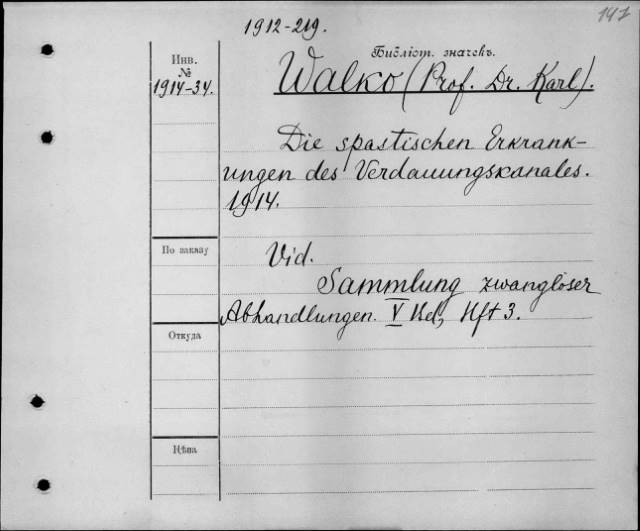 147
1912-219.
Инв.
№
1914-34.
Библіот. значекъ.
Walko (Prof. Dr. Karl).
Die spastischen Erkrank-
ungen des Verdauungskanales.
1914.
По заказу
Vid.
Sammlung zwangloser
Abhandlungen. V Bd, Hft 3.
Откуда
Цѣна